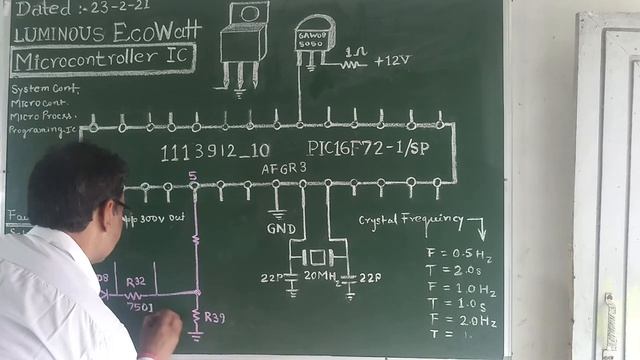 Dated :- 23-2-21
LUMINOUS ECOWatt
Microcontroller IC
System Cont.
Micro Cont.
Micro Process.
Programing Ic
1Ω
+12V
1113912_10 PIC16F72-1/SP
AFGR3
5
300V out
GND
Crystal Frequincy
22P 20MHz 22P
F = 0.5Hz
T = 2.0s
F = 1.0Hz
T = 1.0s
F = 2.0Hz
T =
R32
750
R39